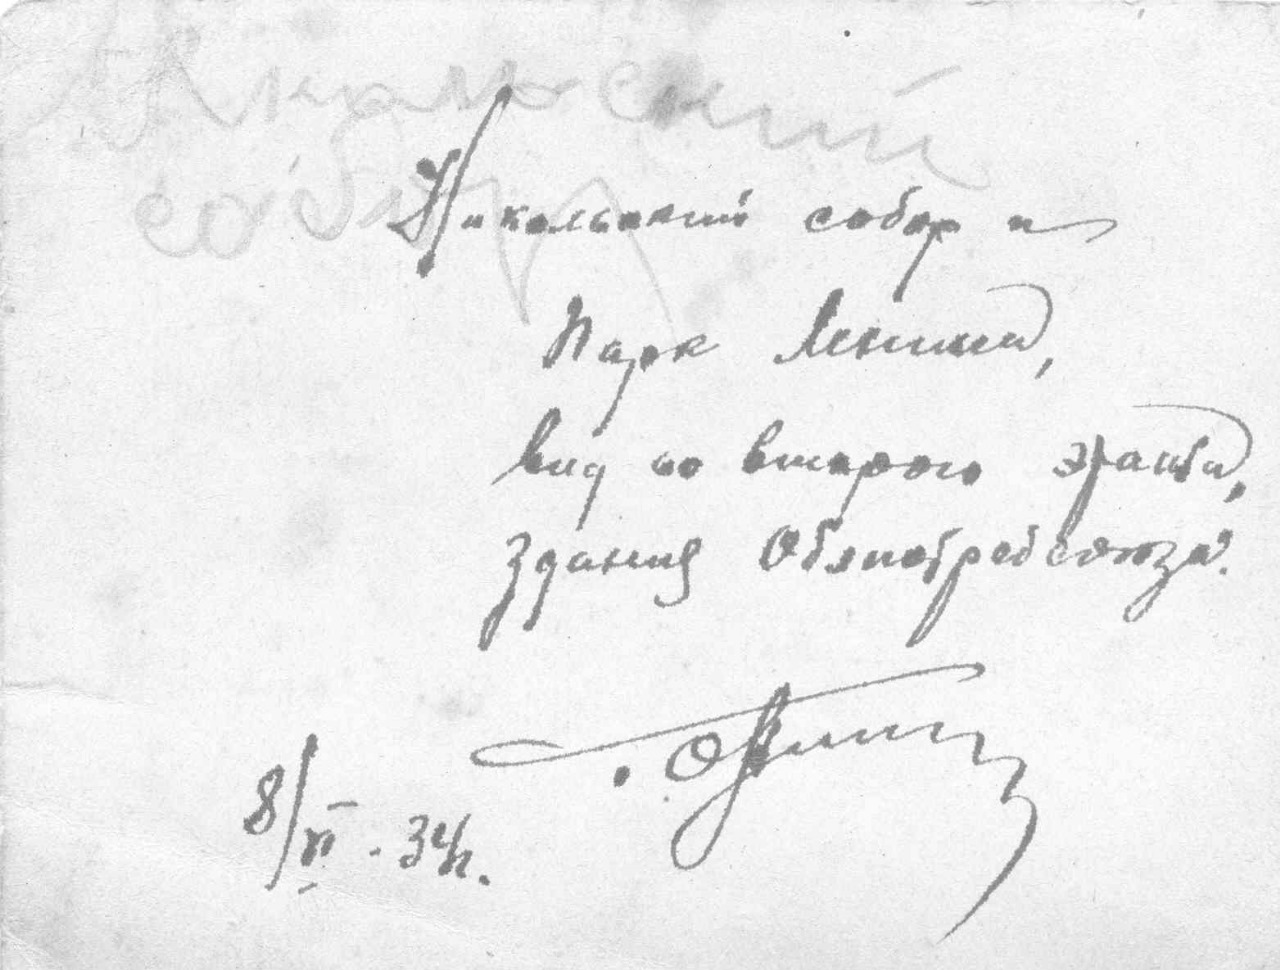 Никольский
собор
Никольский собор и
Парк Ленина,
вид со второго этажа,
здания Облпотребсоюза.
8/VI - 34г.